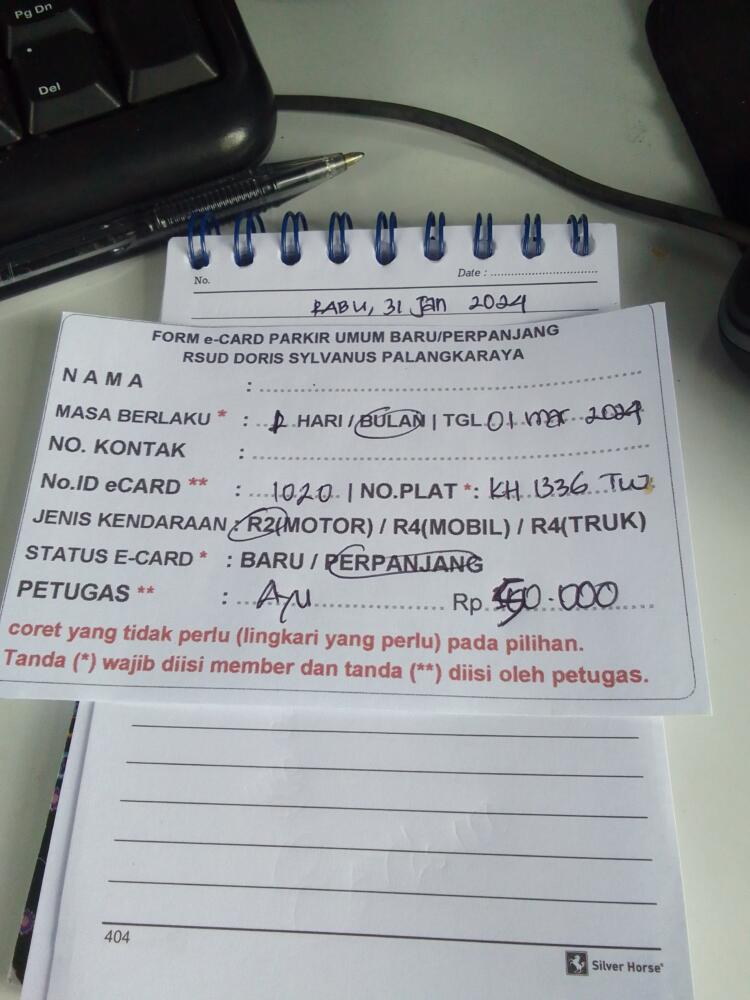 Pg Dn
Del
No.
Date : ................................
RABU, 31 Jan 2024
FORM e-CARD PARKIR UMUM BARU/PERPANJANG
RSUD DORIS SYLVANUS PALANGKARAYA
NAMA : ................................
MASA BERLAKU * : HARI / BULAN | TGL 01 mar 2024
NO. KONTAK : ................................
No.ID eCARD ** : 1020 | NO.PLAT *: KH 1336 TW
JENIS KENDARAAN : R2(MOTOR) / R4(MOBIL) / R4(TRUK)
STATUS E-CARD * : BARU / PERPANJANG
PETUGAS ** : Ayu Rp 50.000
coret yang tidak perlu (lingkari yang perlu) pada pilihan.
Tanda (*) wajib diisi member dan tanda (**) diisi oleh petugas.
404
Silver Horse